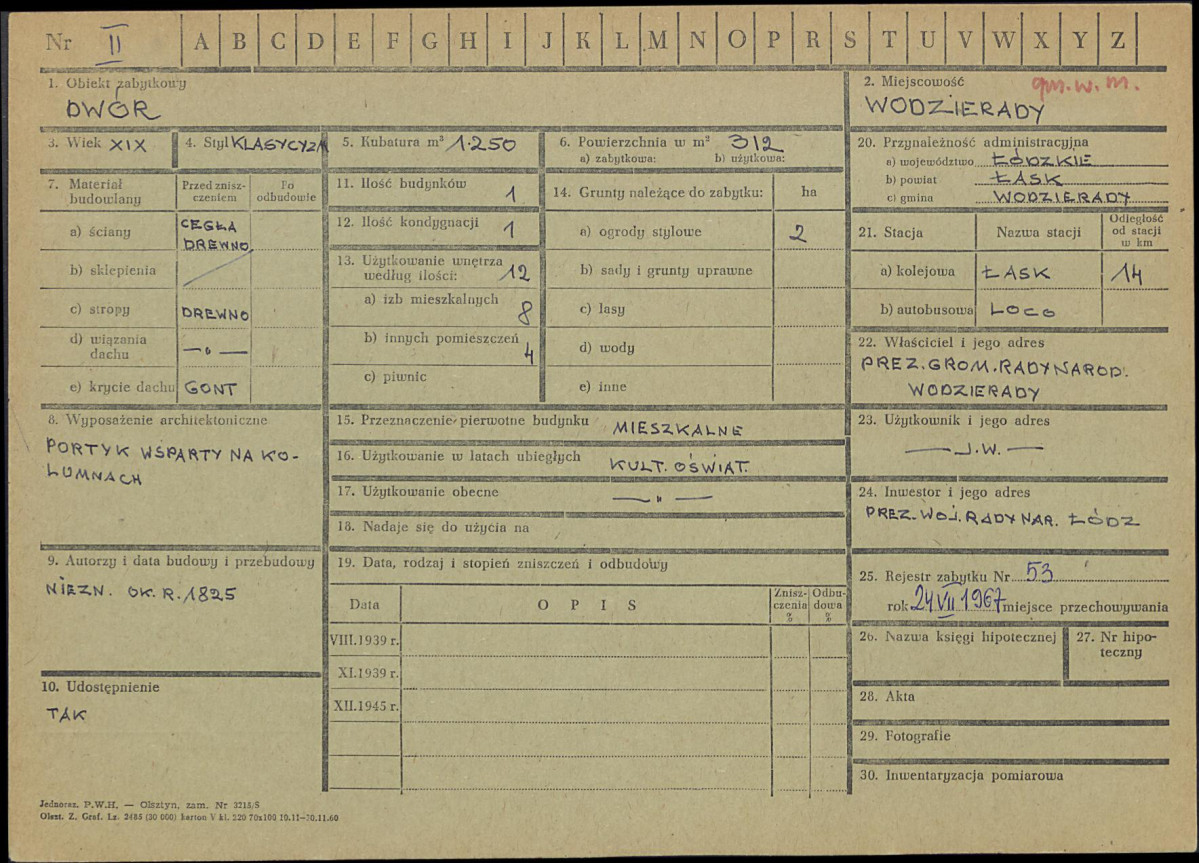 Nr II A B C D E F G H I J K L M N O P R S T U V W X Y Z
1. Obiekt zabytkowy
DWÓR
2. Miejscowość
gm. w. m.
WODZIERADY
3. Wiek XIX
4. Styl KLASYCYZM
5. Kubatura m³ 1.250
6. Powierzchnia w m² 312
a) zabytkowa: b) użytkowa:
20. Przynależność administracyjna
a) województwo ŁÓDZKIE
b) powiat ŁASK
c) gmina WODZIERADY
7. Materiał budowlany
Przed znisz-
czeniem
Po
odbudowie
a) ściany CEGŁA
DREWNO
b) sklepienia
c) stropy DREWNO
d) wiązania
dachu — " —
e) krycie dachu GONT
11. Ilość budynków 1
12. Ilość kondygnacji 1
13. Użytkowanie wnętrza
według ilości: 12
a) izb mieszkalnych 8
b) innych pomieszczeń 4
c) piwnic
14. Grunty należące do zabytku: ha
a) ogrody stylowe 2
b) sady i grunty uprawne
c) lasy
d) wody
e) inne
21. Stacja Nazwa stacji
Odległość
od stacji
w km
a) kolejowa ŁASK 14
b) autobusowa LOCO
22. Właściciel i jego adres
PREZ. GROM. RADY NAROD.
WODZIERADY
8. Wyposażenie architektoniczne
PORTYK WSPARTY NA KO-
LUMNACH
15. Przeznaczenie pierwotne budynku MIESZKALNE
16. Użytkowanie w latach ubiegłych KULT. OŚWIAT.
17. Użytkowanie obecne — " —
18. Nadaje się do użycia na
23. Użytkownik i jego adres
— J.W. —
24. Inwestor i jego adres
PREZ. WOJ. RADY NAR. ŁÓDZ
9. Autorzy i data budowy i przebudowy
NIEZN. OK. R. 1825
10. Udostępnienie
TAK
19. Data, rodzaj i stopień zniszczeń i odbudowy
Data OPIS
Znisz-
czenia
%
Odbu-
dowa
%
VIII.1939 r.
XI.1939 r.
XII.1945 r.
25. Rejestr zabytku Nr 53
rok 24 VII 1967 miejsce przechowywania
26. Nazwa księgi hipotecznej
27. Nr hipo-
teczny
28. Akta
29. Fotografie
30. Inwentaryzacja pomiarowa
Jednoraz. P.W.H. — Olsztyn, zam. Nr 3215/S
Olszt. Z. Graf. Lz. 2485 (30 000) karton V kl. 220 70x100 10.11—30.11.60